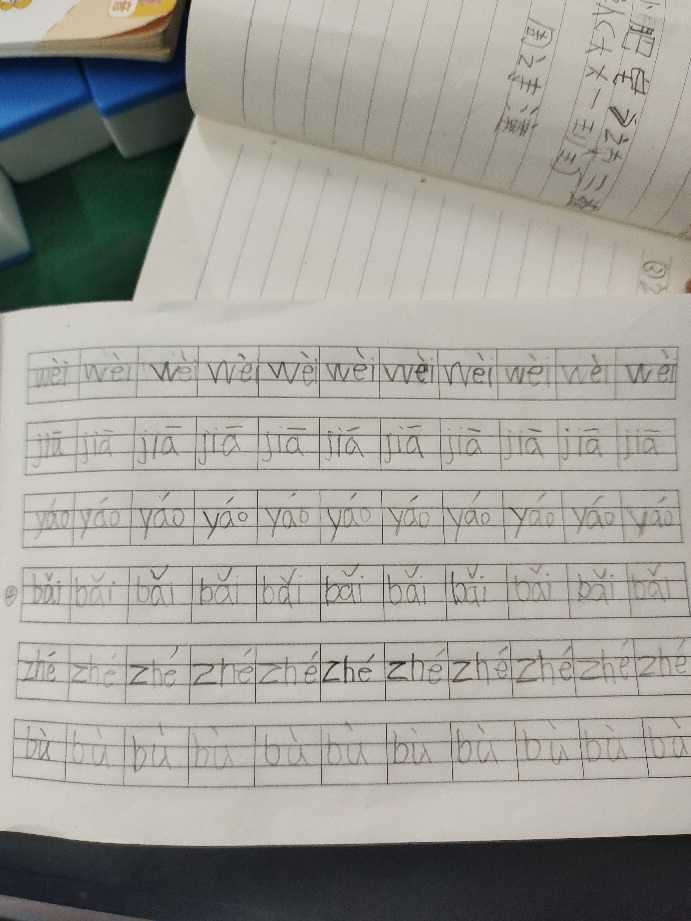 wèi wèi wèi wèi wèi wèi wèi wèi wèi wèi wèi
jiā jiā jiā jiā jiā jiā jiā jiā jiā jiā jiā
yáo yáo yáo yáo yáo yáo yáo yáo yáo yáo yáo
bǎi bǎi bǎi bǎi bǎi bǎi bǎi bǎi bǎi bǎi bǎi
zhé zhé zhé zhé zhé zhé zhé zhé zhé zhé zhé
bù bù bù bù bù bù bù bù bù bù bù